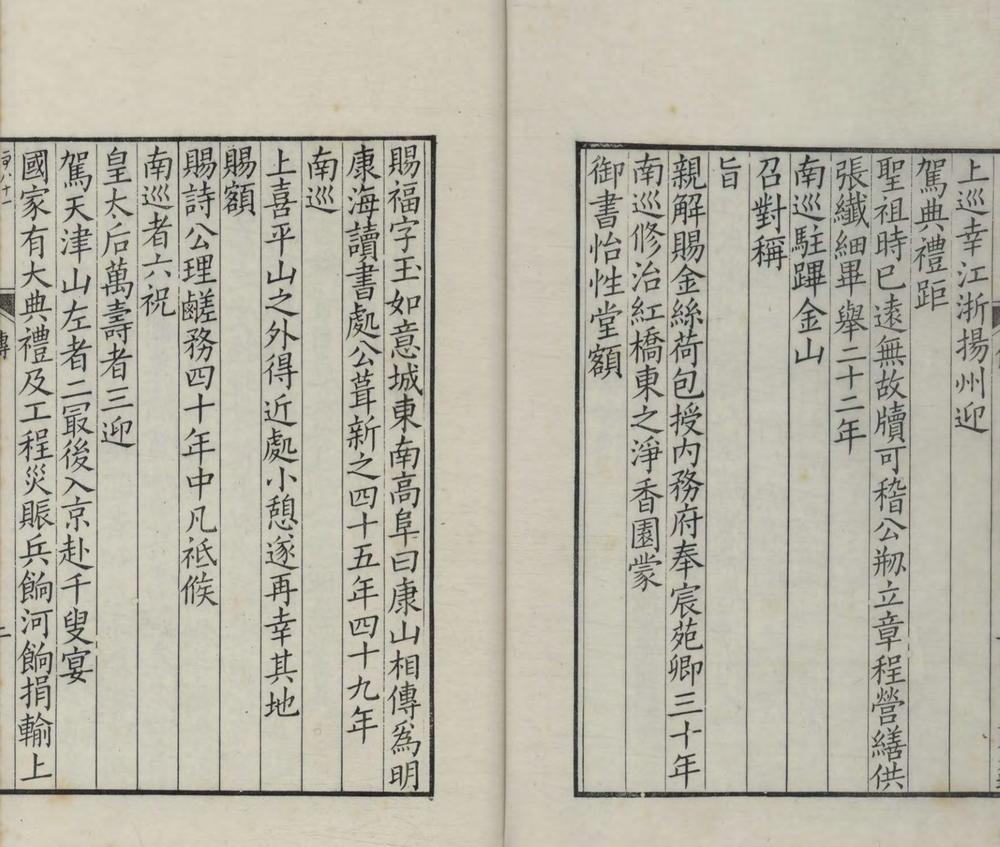 上巡幸江浙揚州迎
駕典禮距
聖祖時已遠無故牘可稽公剏立章程營繕供
張纎細畢舉二十二年
南巡駐蹕金山
召對稱
旨
親解賜金絲荷包授內務府奉宸苑卿三十年
南巡修治紅橋東之淨香園蒙
御書怡性堂額
賜福字玉如意城東南高阜曰康山相傳爲明
康海讀書處公葺新之四十五年四十九年
南巡
上喜平山之外得近處小憩遂再幸其地
賜額
賜詩公理鹺務四十年中凡祗候
南巡者六祝
皇太后萬壽者三迎
駕天津山左者二冣後入京赴千叟宴
國家有大典禮及工程災賑兵餉河餉捐輸上
傳
二